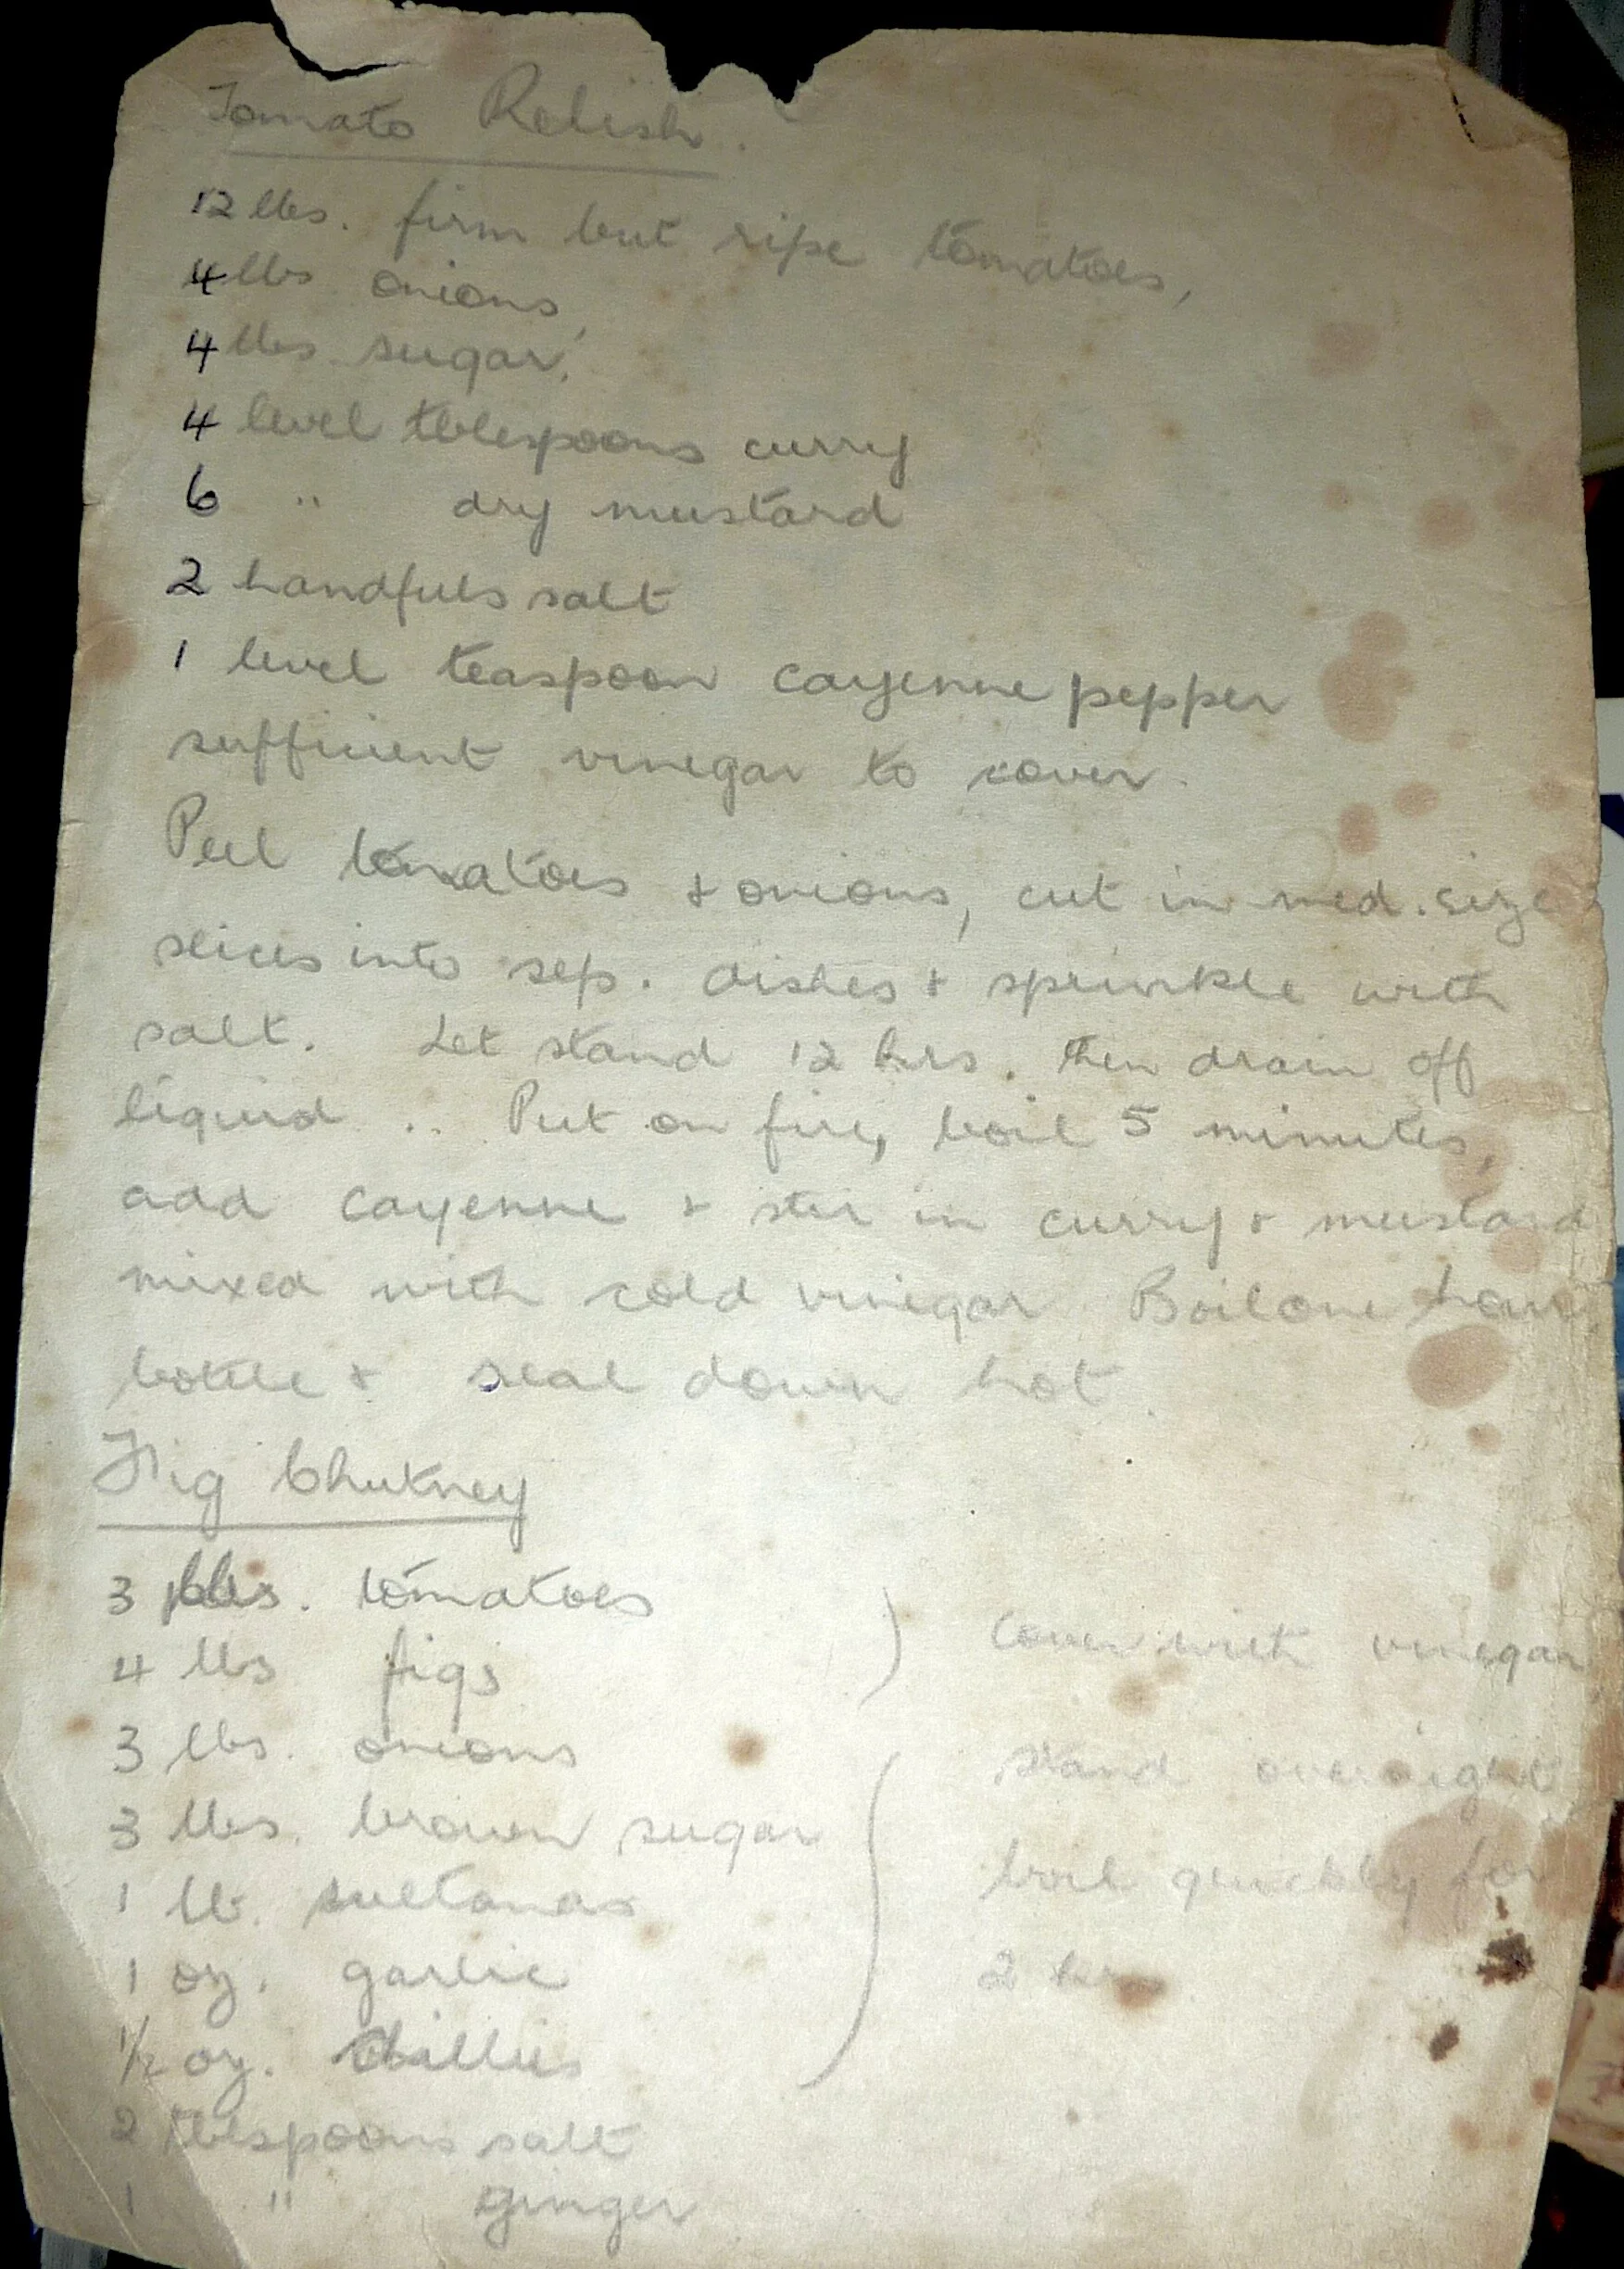 Tomato Relish.
12 lbs. firm but ripe tomatoes,
4 lbs onions,
4 lbs sugar,
4 level tblespoons curry
6 " dry mustard
2 handfuls salt
1 level teaspoon cayenne pepper
sufficient vinegar to cover.
Peel tomatoes & onions, cut in med. size
slices into sep. dishes & sprinkle with
salt. Let stand 12 hrs. then drain off
liquid .. Put on fire, boil 5 minutes,
add cayenne & stir in curry & mustard
mixed with cold vinegar. Boil one hour,
bottle & seal down hot.
Fig Chutney
3 lbs. tomatoes
4 lbs figs
cover with vinegar
3 lbs. onions
stand overnight
3 lbs. brown sugar
boil quickly for
1 lb. sultanas
2 hrs
1 oz. garlic
1/2 oz. chillies
2 tblespoons salt
1 " ginger